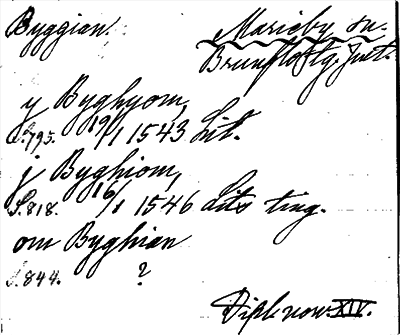 Byggian. Marieby sn.
Brunflo tg. Jmtl.
y Byghyom,
S. 795. 19/1 1543 Lit.
j Byghiom,
S. 818. 16/1 1546 Lits ting.
om Byghian
S. 844. ?
Dipl. norv. XIV.